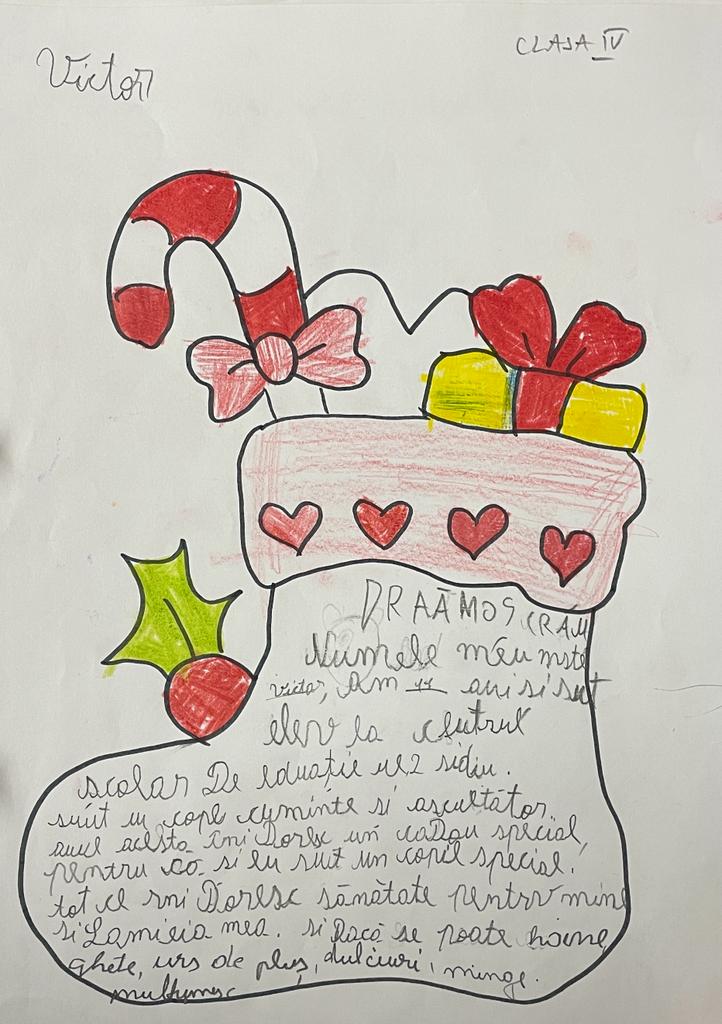 Victor
CLASA IV
DRAĂMOȘ CRAM
Numele meu mste
Victor, Am 11 ani si sut
elev la
școlar De eduație nr2
sunt un copil cuminte si ascultător.
anul acesta îmi Doresc un caDou special,
pentru că si eu sut un copil special.
tot ce îmi Doresc sănătate pentru mine
si familia mea. si Dacă se poate haine,
ghete, urs de pluș, dulciuri, minge.
multumesc